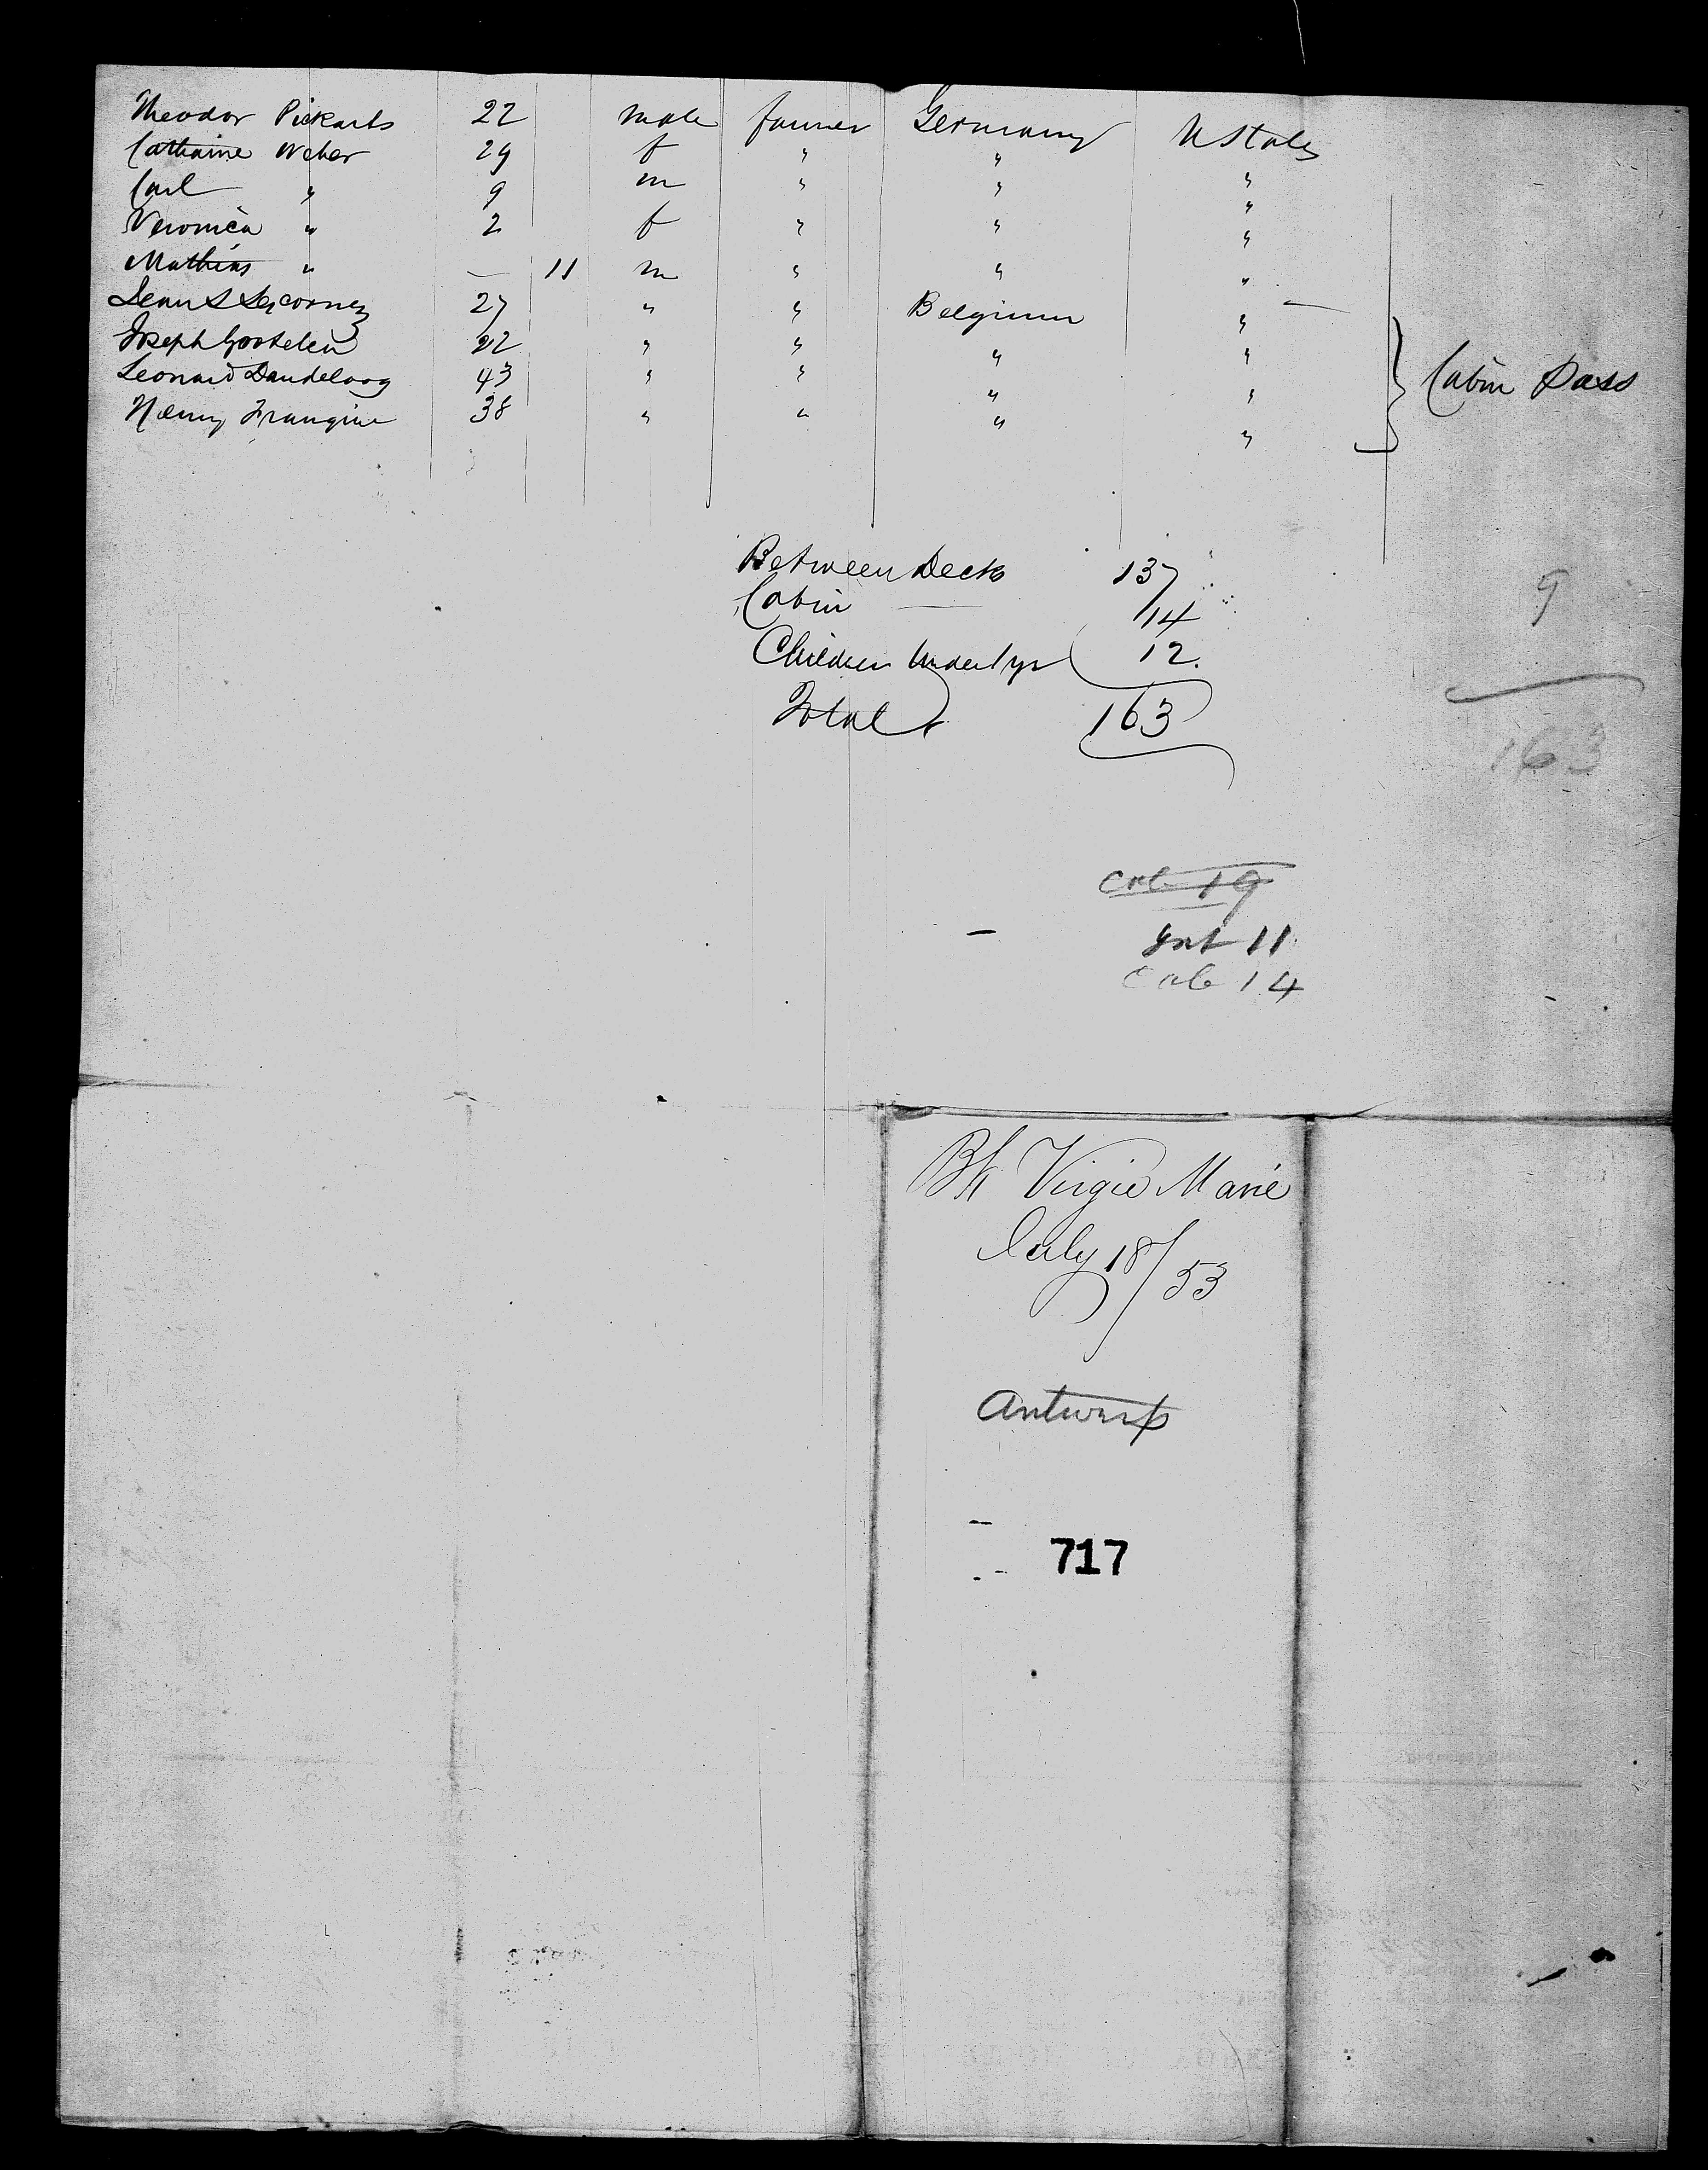 Theodor Pickarts 22 male farmer Germany U States
Catharine Weber 29 f " " "
Carl " 9 m " " "
Veronica " 2 f " " "
Mathias " — 11 m " " "
27 " " Belgium "
Joseph 22 " " " "
Leonard Dandeloog 43 " " " "
Henry Frangine 38 " " " "
Cabin Pass
Between Decks 137
Cabin — 14
Children Under 1 yr 12.
Total 163
9
163
Cab 19
Inf 11
Cab 14
Bk Virgie Marie
July 18/53
Antwerp
717